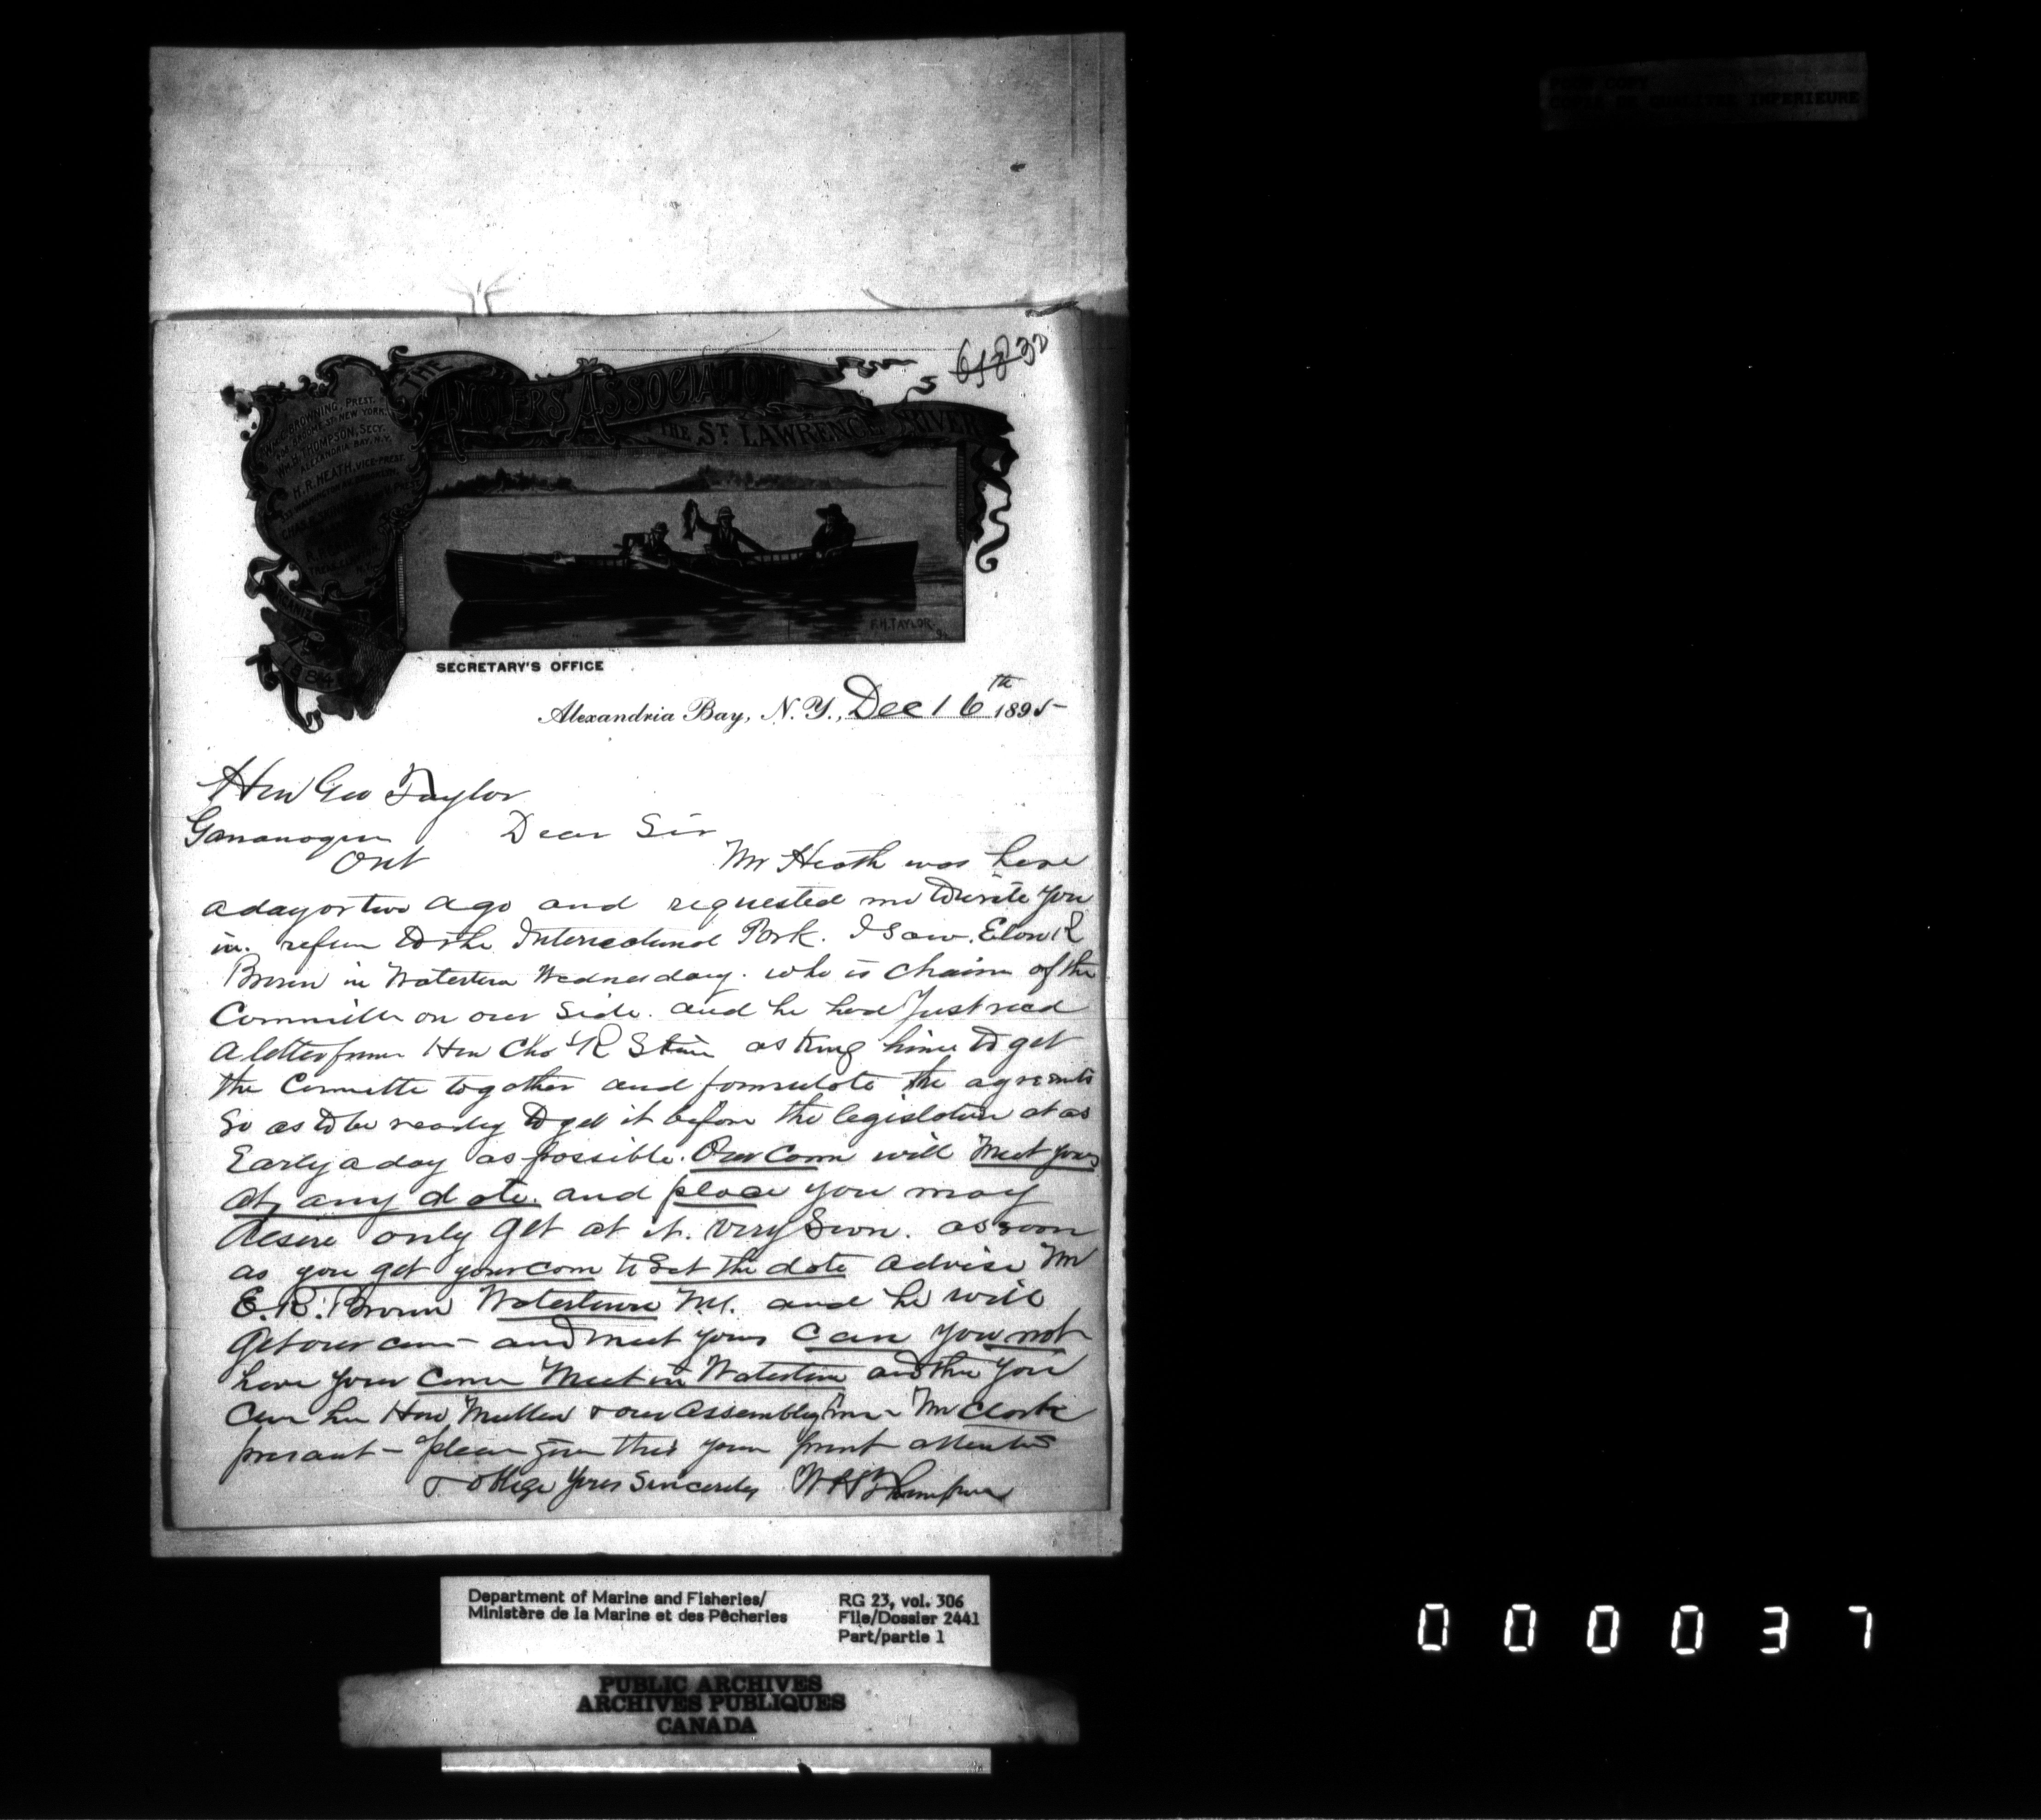 POOR COPY
COPIE DE QUALITEE INFERIEURE
61830
THE
ANGLERS ASSOCIATION
THE ST. LAWRENCE RIVER
BROWNING, PREST.
NEW YORK.
WM. H. THOMPSON, SECY.
ALEXANDRIA BAY, N.Y.
H. R. HEATH, VICE-PREST.
1884
F.H. TAYLOR
SECRETARY'S OFFICE
Alexandria Bay, N. Y., Dec 16th 1895
Hon Geo Taylor
Gananoque Dear Sir
Ont Mr Heath was here
a day or two ago and requested me to write you
in. refere to the International Park. I saw. Elon R
Brown in Watertown Wednesday. who is chairm of the
Committe on our Side. and he had Just recd
a letter from Hon Chs R Skin asking him to get
the Committe together and formulate the agrents
So as to be ready to get it before the legislature at as
Early a day as possible. Our Com will Meet yours
at any date. and place you may
desire only get at it. very Soon. as soon
as you get your com to Set the date advise Mr
E. R. Brown Watertown N.Y. and he will
get our com - and meet yours Can you not
have your Come Meet in Watertown and then you
can hav Hon Mullen & our Assemblyman - Mr Clark
presant - please give this your promt attention
& oblige Yours Sincerely W H Thompson
Department of Marine and Fisheries/
Ministère de la Marine et des Pêcheries
RG 23, vol. 306
File/Dossier 2441
Part/partie 1
PUBLIC ARCHIVES
ARCHIVES PUBLIQUES
CANADA
000037